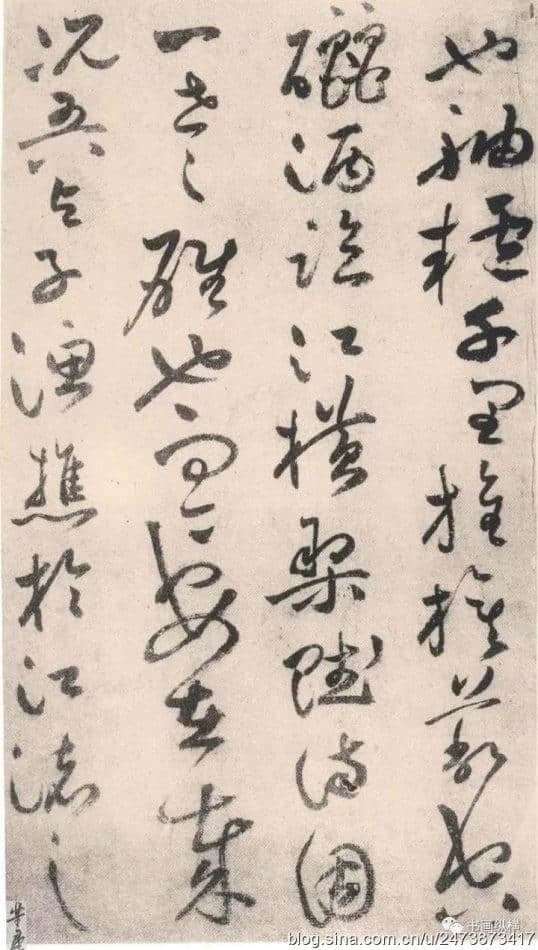 也舳艫千里旌旗蔽空
釃酒臨江橫槊賦詩固
一世之雄也而今安在哉
況吾与子漁樵於江渚之
书画纵横
blog.sina.com.cn/u/2473873417